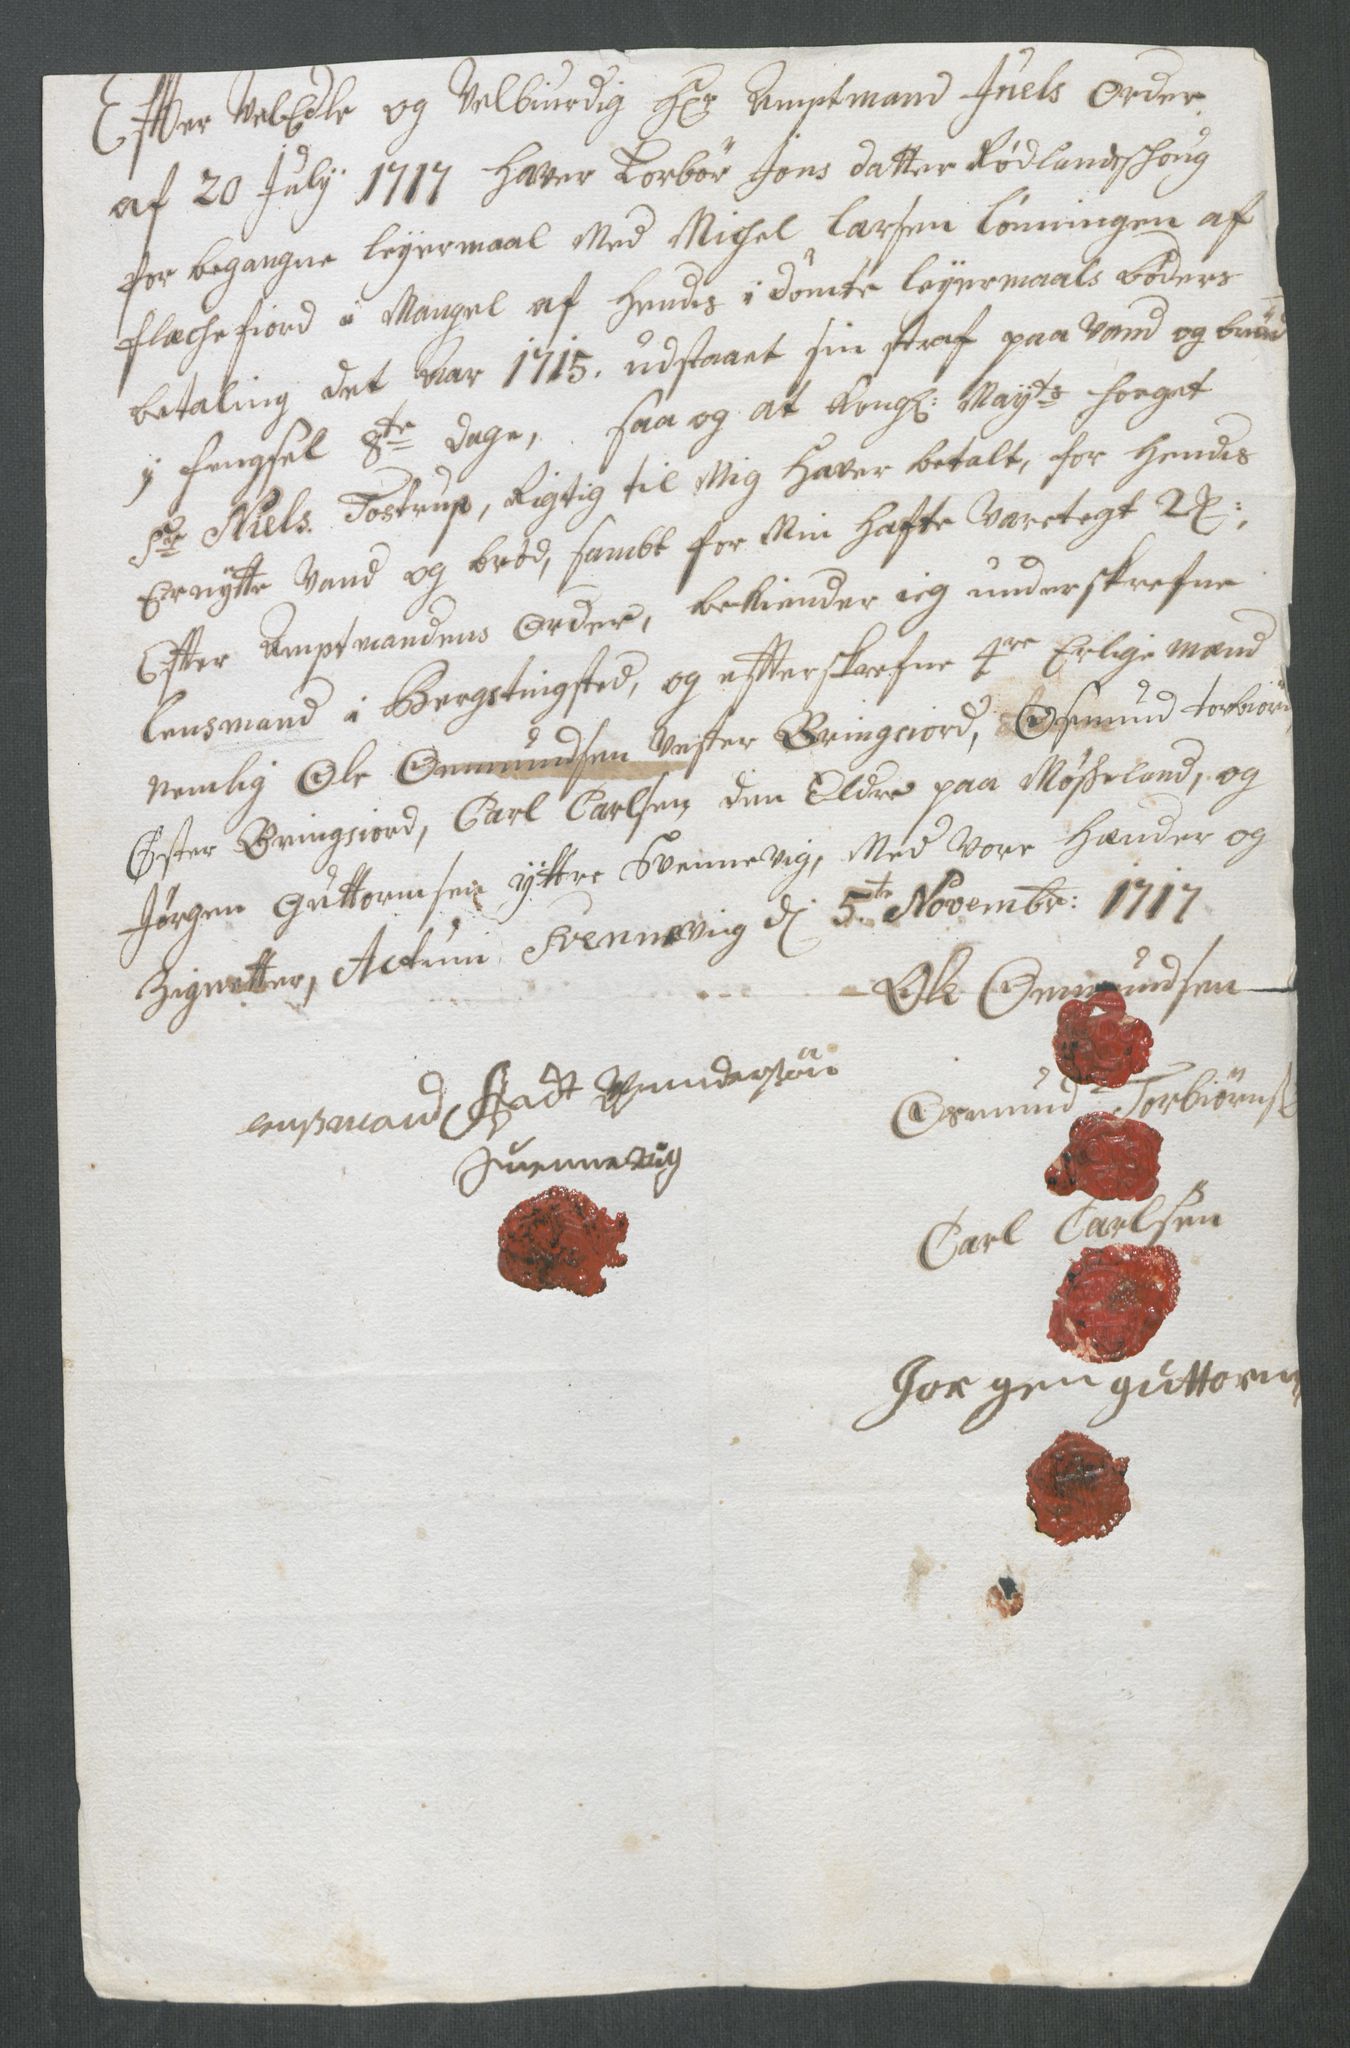 Effter VelEdle og Velbiurdig Hr: Amptmand Juels Order
af 20 July 1717 haver Torbør Jons datter Rødlandsschoug
for begangne leyermaal Med Michel Larsen Lønningen af
Flechefiord i Mangel af hendis i dømte leyermaals bøders
betaling det aar 1715. udstaaet sin straf paa Vand og brød
y fengsel 8te dage, saa og at Kongl: Mayts foeget
Sr Niels Tostrup, Rigtig til Mig haver betalt, for hendis
Ernytte Vand og brød, sambt for Min hafte Varetegt
Effter Amptmandens Order, bekiender ieg underskrefne
lensmand i Bergstingsted, og effterskrefne 4re Erlige mænd
Nemlig Ole Onmundsen Vester Bringsiord, Osmund torbiørn
Øster Bringsiord, Carl Carlsen den Eldre paa Møsseland, og
Jørgen Guttormsen yttre Svennevig, Med Vore hænder og
Zignetter, Actum Svennevig dj 5te Novembr: 1717
Ole Onmundsen
lenssmand
Osmund Torbiørns
Suennevig
Carl Carlsen
Jorgen guttorm